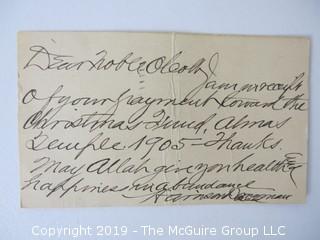 Dear Noble Olcott,
I am in receipt
of your payment toward the
Christmas Fund, Almas
Temple 1905 - Thanks.
May Allah give you health &
happiness in abundance
Harrison
Copyright 2019 - The McGuire Group LLC